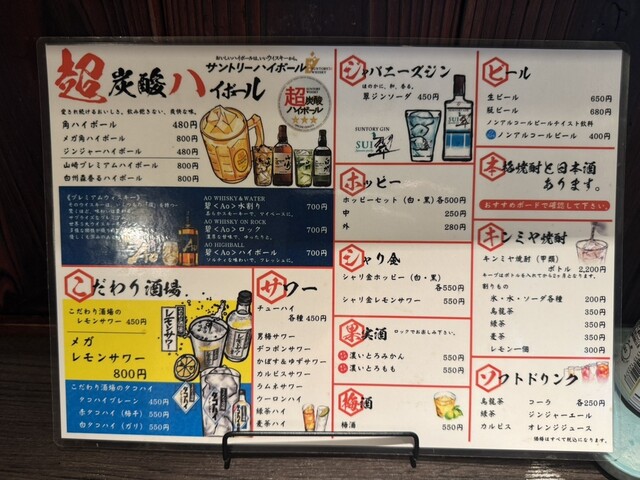 超炭酸ハイボール
おいしいハイボールは、いいウイスキーから。
サントリーハイボール
愛され続けるおいしさ。飲み飽きない、爽快な味。
角ハイボール 480円
メガ角ハイボール 800円
ジンジャーハイボール 480円
山崎プレミアムハイボール 800円
白州森香るハイボール 800円
超炭酸ハイボール
★★★
《プレミアムウィスキー》
AO WHISKY&WATER
碧<Ao>水割り 700円
AO WHISKY ON ROCK
碧<Ao>ロック 700円
AO HIGHBALL
碧<Ao>ハイボール 700円
こだわり酒場
こだわり酒場の
レモンサワー 450円
メガ
レモンサワー
800円
こだわり酒場のタコハイ
タコハイプレーン 450円
赤タコハイ(梅干) 550円
白タコハイ(ガリ) 550円
サワー
チューハイ
各種 450円
男梅サワー
デコポンサワー
かぼす&ゆずサワー
カルピスサワー
ラムネサワー
ウーロンハイ
緑茶ハイ
麦茶ハイ
ジャパニーズジン
ほのかに、和、香る。
翠ジンソーダ 450円
SUNTORY GIN
SUI 翠
ホッピー
ホッピーセット(白・黒)各500円
中 250円
外 280円
シャリ金
シャリ金ホッピー(白・黒)
各550円
シャリ金レモンサワー 550円
果実酒
ロックでお楽しみ下さい。
濃いとろみかん 550円
濃いとろもも 550円
梅酒
梅酒 550円
ビール
生ビール 650円
瓶ビール 680円
ノンアルコールビールテイスト飲料
ノンアルコールビール 400円
本格焼酎と日本酒
あります。
おすすめボードで確認して下さい。
キンミヤ焼酎
キンミヤ焼酎(甲類)
ボトル 2,200円
キープはボトルを入れてから2ヶ月となります。
割りもの
氷・水・ソーダ各種 200円
烏龍茶 350円
緑茶 350円
麦茶 350円
レモン一個 300円
ソフトドリンク
烏龍茶 コーラ 各250円
緑茶 ジンジャーエール
カルピス オレンジジュース
価格はすべて税込になります。